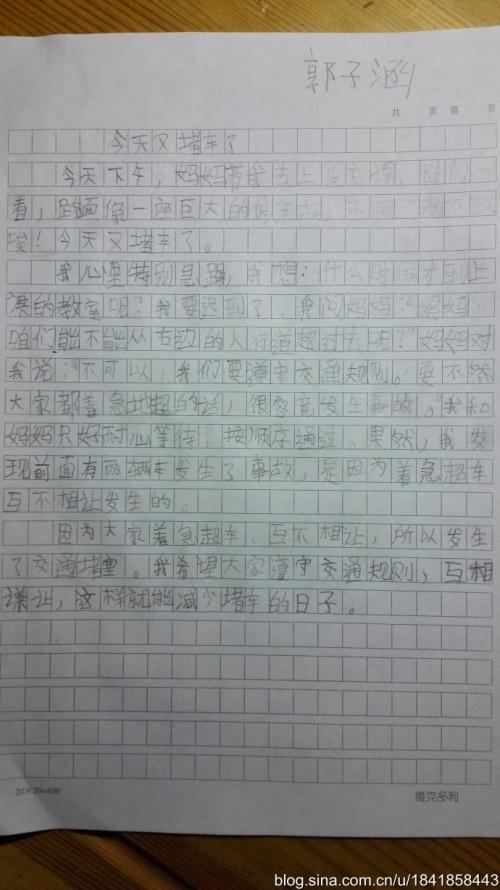 郭子涵
共 页 第 页
今天又堵车了
今天下午，妈妈带我去上
看，路面像一座巨大的停车
唉！今天又堵车了。
我心里特别急躁，我想：“什么时候才到上
课的教室呢？我要迟到了，我问妈妈：“妈妈，
咱们能不能从右边的人行道超过去呢？”妈妈对
我说：“不可以，我们要遵守交通规则。要不然
大家都着急地超的话，很容易发生事故。”我和
妈妈只好耐心等待，按顺序通过。果然，我发
现前面有两辆车发生了事故，是因为着急超车
互不相让发生的。
因为大家着急超车、互不相让，所以发生
了交通堵塞。我希望大家遵守交通规则，互相
谦让，这样就能减少堵车的日子。
20×20=400
维克多利
blog.sina.com.cn/u/1841858443